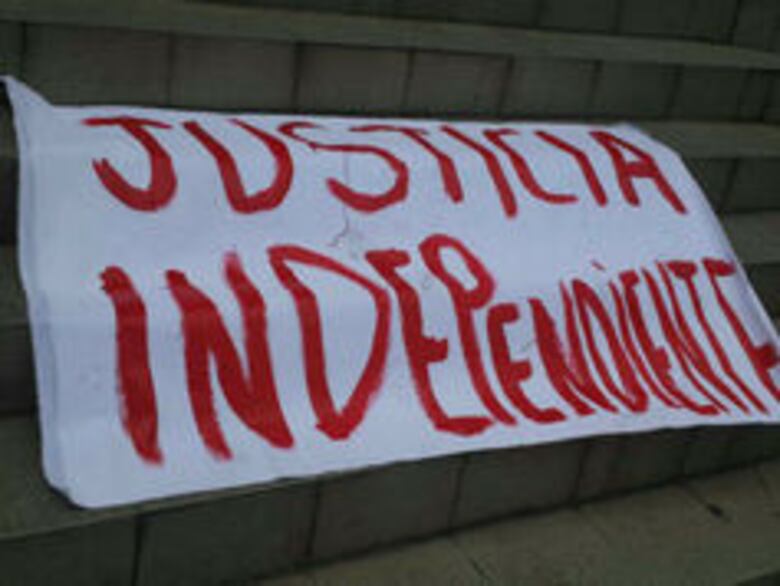 JUSTICIA
INDEPENDIENTE